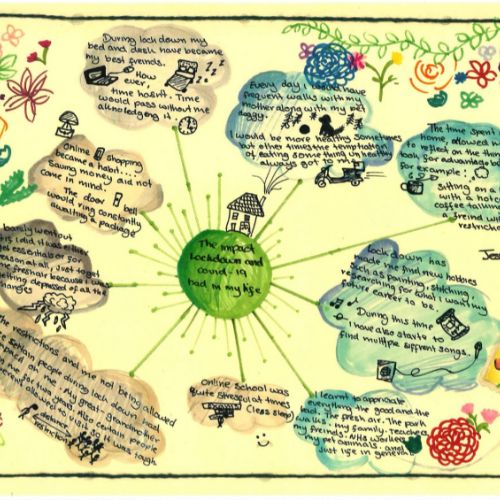 During lock down my
bed and desk have became
my best freinds.
How
ever,
time hasn't. Time
would pass without me
aknoledging it
Every day I would have
frequent walks with my
mother along with my pet
doggy.
I would be more healthy sometimes
but other times the temptation
of eating something unhealthy
always got to me
The time spent
home, allowed
to reflect on the
took for advantage
example:
Sitting on a
with a hot
coffee talking
a freind with
restricti
Online shopping
became a habit...
Saving money did not
come in mind.
The door bell
would ring constantly
awaiting a package
The impact
Lockdown and
covid-19
had in my life
family went out
this I did it was either
get essentials or for
personal
just to get
fresh air because I was
feeling depressed at all the
changes
Lockdown has
made me find new hobbies
such as painting, stitching,
researching for what I want my
future career to be.
During this time
I have also starts to
find multiple siffrent songs.
The restrictions and me not being allowed
to see certain people during lock down had
impact on me. My great grandmother
Also certain people
to visit
it was tough
distance
restrictions
Online school was
quite stressful at times
(less sleep)
learnt to appreciate
everything the good and the
bad. The fresh air. The park
walks. my family. Teachers,
my freinds. NHS workers
my pet animals. and
just life in general